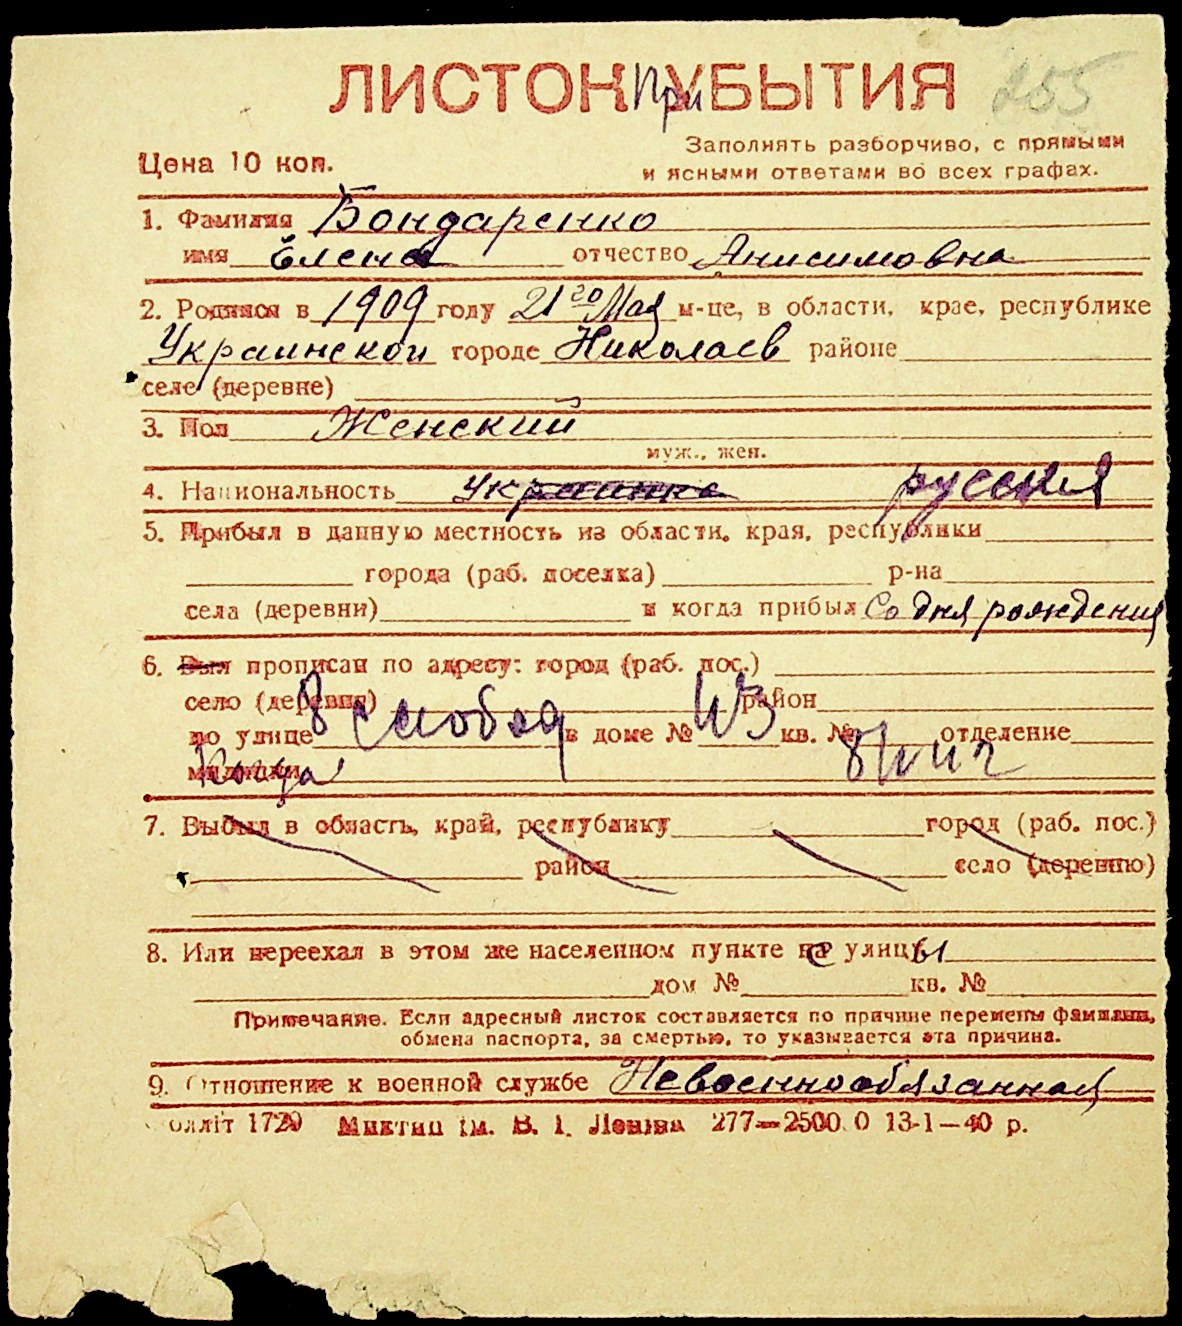 ЛИСТОК При УБЫТИЯ 255
Цена 10 коп.
Заполнять разборчиво, с прямыми
и ясными ответами во всех графах.
1. Фамилия Бондаренко
имя Елена отчество Анисимовна
2. Родился в 1909 году 21го Мая м-це, в области, крае, республике
Украинской городе Николаев районе
селе (деревне)
3. Пол Женский
муж., жен.
4. Национальность Украинка русская
5. Прибыл в данную местность из области, края, республики
города (раб. поселка) р-на
села (деревни) и когда прибыл Со дня рождения
6. Был прописан по адресу: город (раб. пос.)
село (деревня) район
по улице 8 слобод в доме № кв. № отделение
милиции
7. Выбыл в область, край, республику город (раб. пос.)
район село (деревню)
8. Или переехал в этом же населенном пункте на с улицы
дом № кв. №
Примечание. Если адресный листок составляется по причине перемены фамилии,
обмена паспорта, за смертью, то указывается эта причина.
9. Отношение к военной службе Невоеннообязанная
олліт 1729 Миктип ім. В. І. Леніна 277—2500 0 13-1—40 р.